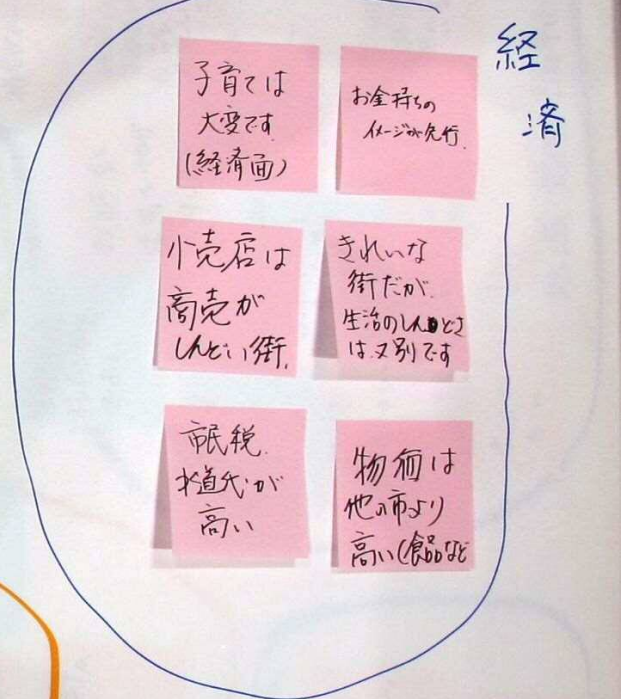 経
済
子育ては
大変です
(経済面)
お金持ちの
イメージが先行.
小売店は
商売が
しんどい街.
きれいな
街だが.
生活のしんどさ
は又別です
市民税.
水道代が
高い
物価は
他の市より
高い(食品など